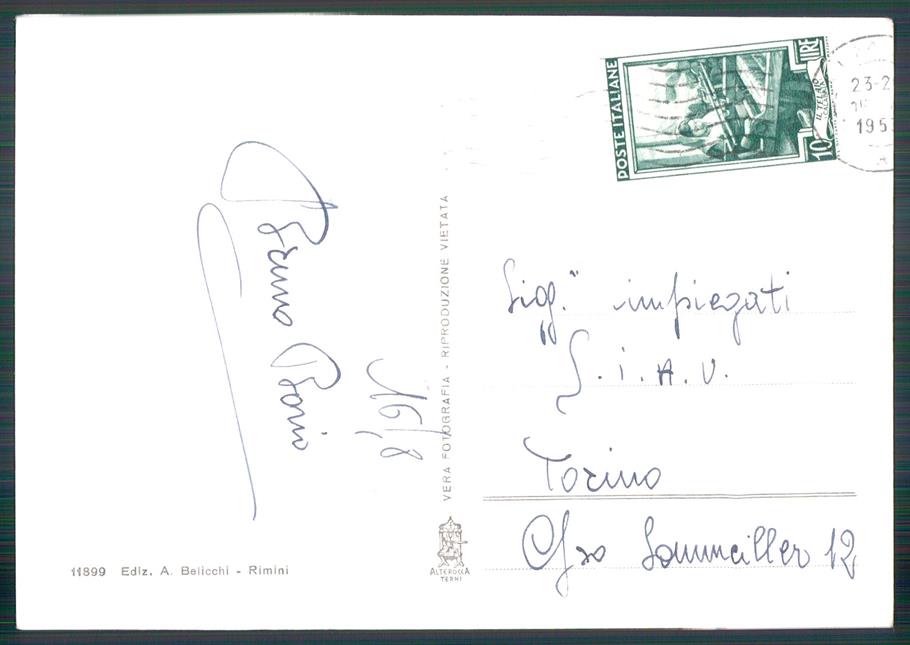 Bruno Borio
16/8
VERA FOTOGRAFIA - RIPRODUZIONE VIETATA
11899 Ediz. A. Belicchi - Rimini
ALTEROCCA
TERNI
POSTE ITALIANE
LIRE
10
IL TELAIO
23-2
195
Sigg." impiegati
S.I.A.U.
Torino
C/so Sommeiller 12